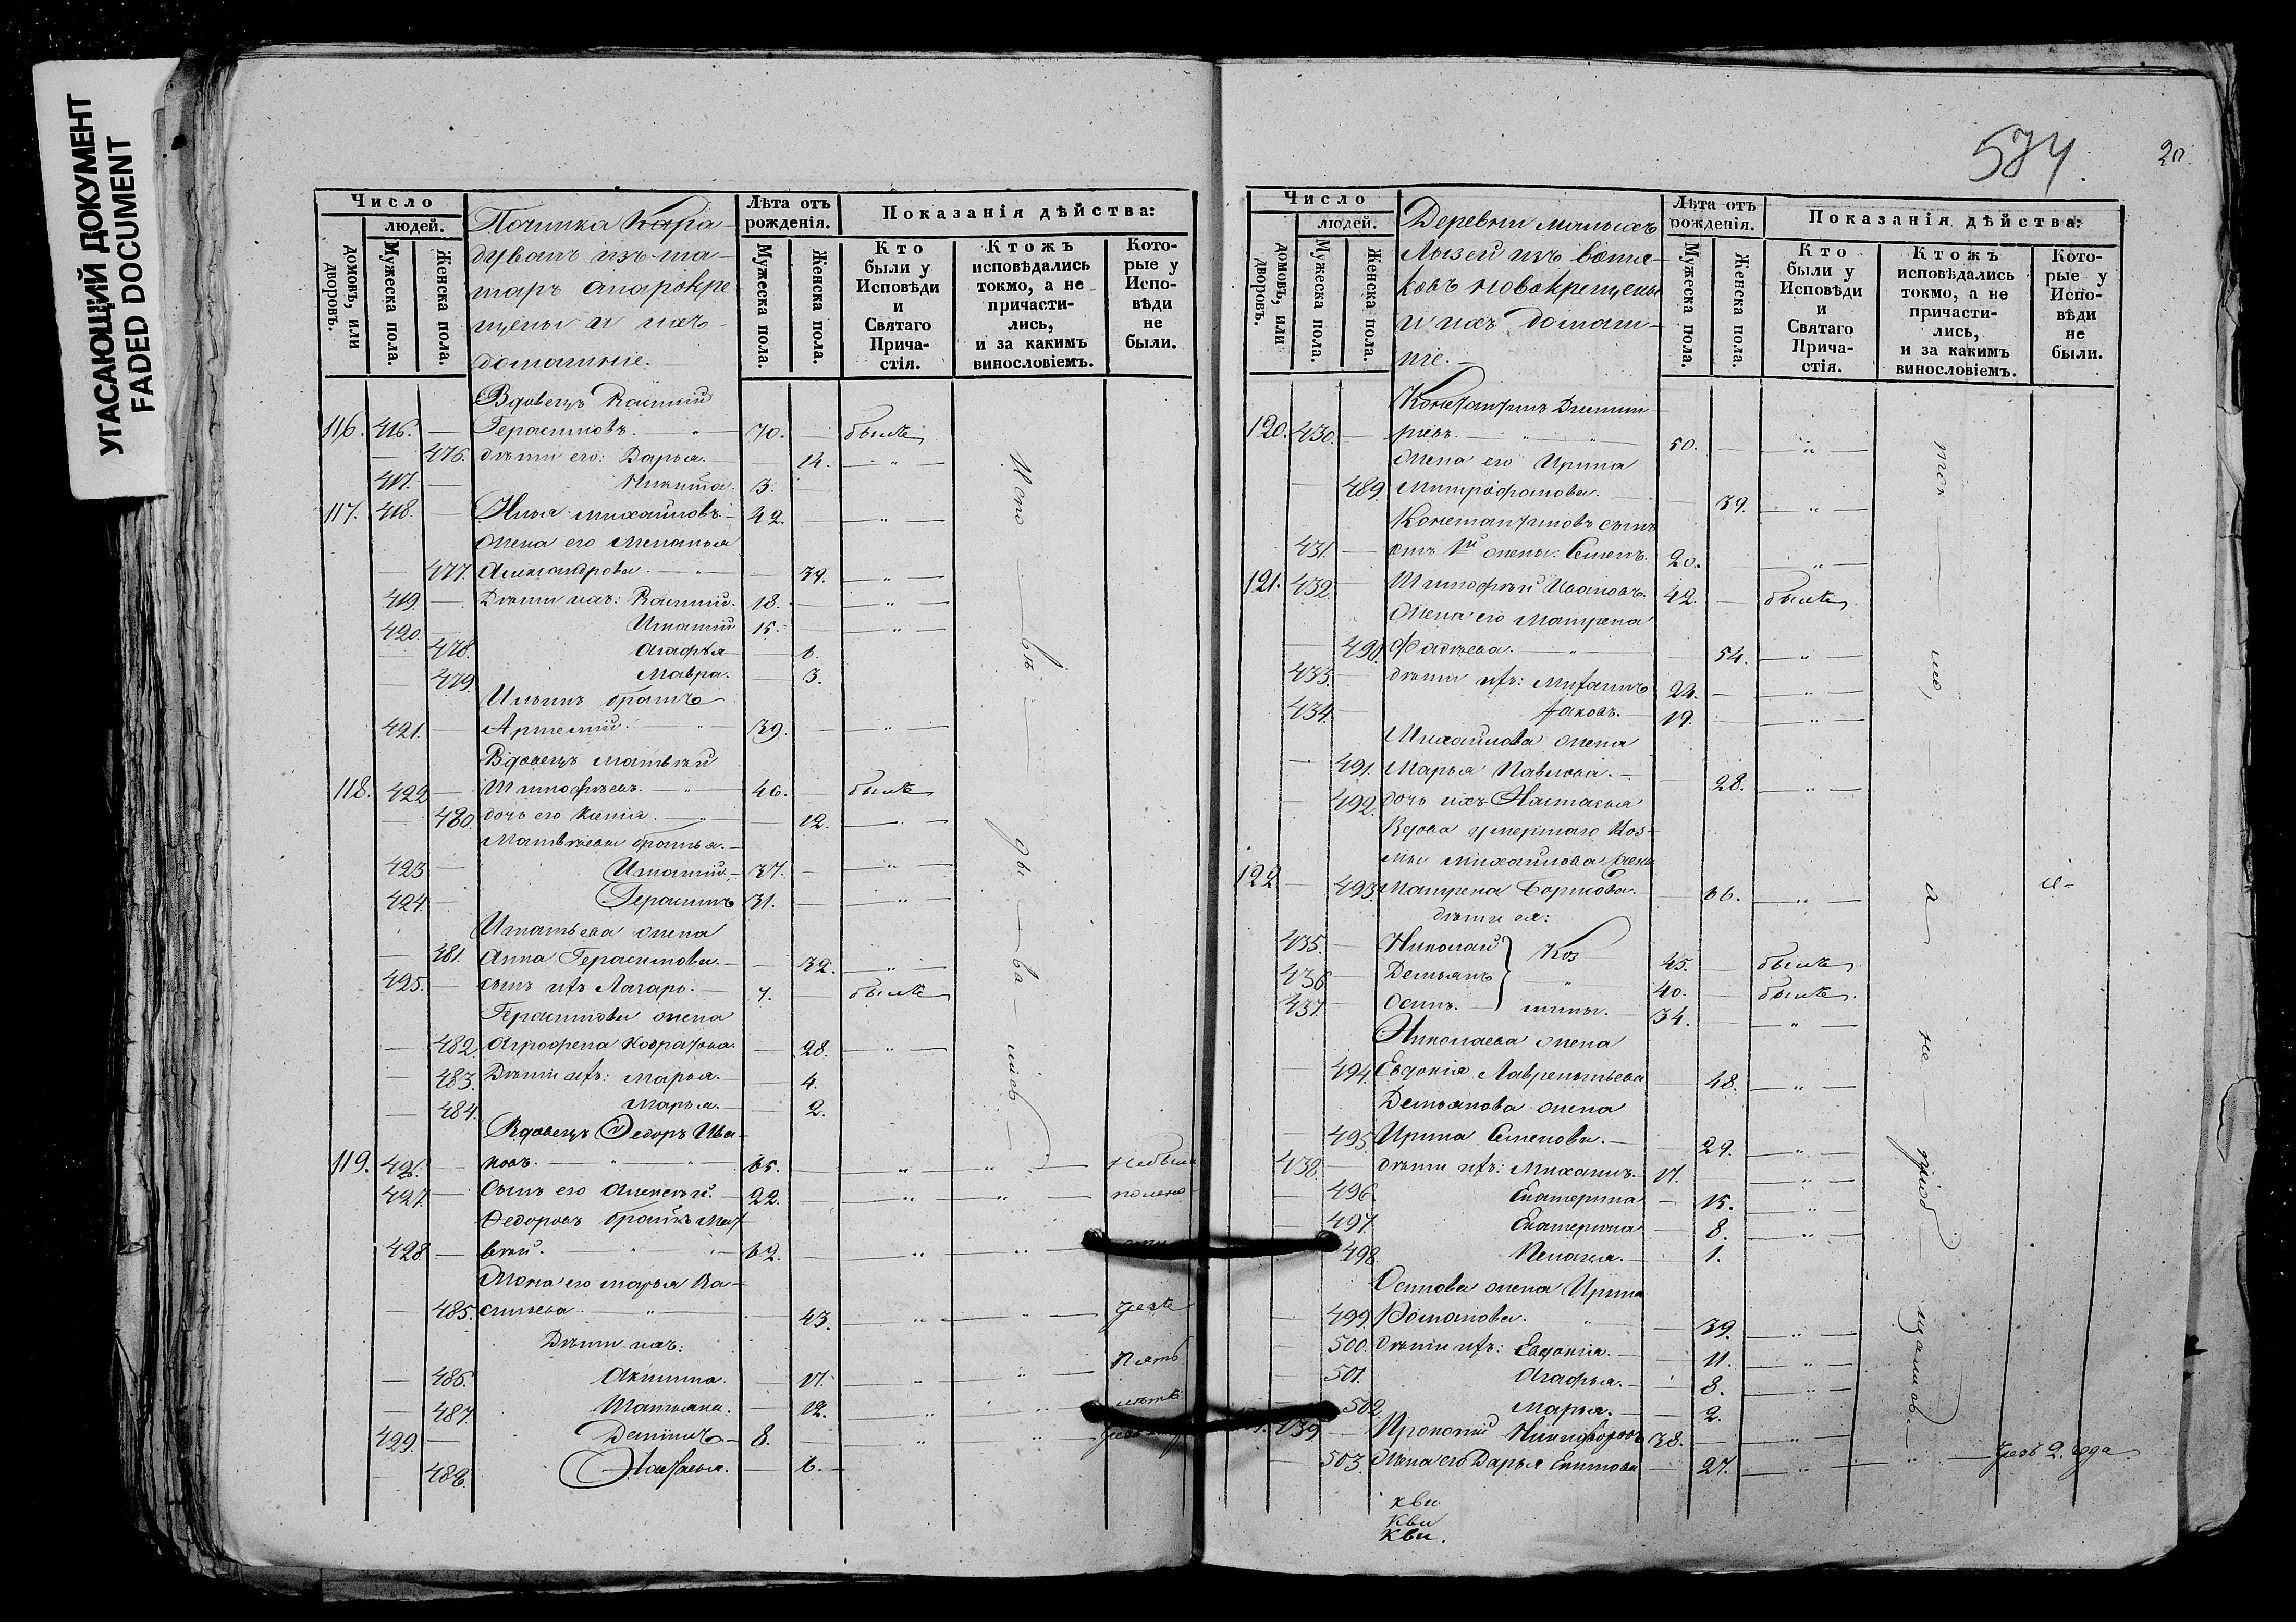 УГАСАЮЩИЙ ДОКУМЕНТ
FADED DOCUMENT
Число
людей.
домовъ, или дворовъ.
Мужеска пола.
Женска пола.
Починка Кара-
дуванъ изъ та-
таръ старокре
щены и ихъ
домашніе.
Лѣта отъ рожденія.
Мужеска пола.
Женска пола.
Показанія дѣйства:
Кто были у Исповѣди и Святаго Прича-стія.
Ктожъ исповѣдались токмо, а не причасти-лись, и за какимъ винословіемъ.
Кото-рые у Испо-вѣди не были.
Вдовецъ Василий
116. 416. — Герасимовъ. — 70. — былъ
— 476. дѣти его: Дарья. — 14. — " —
417. — Никита. 3.
117. 418. — Илья Михайловъ. — 42. — " —
Жена его Меланья
— 477. Александрова. — 39. — " —
419. — Дѣти ихъ: Василий. 18. — " —
420. Игнатий 15. — " —
478. Агафья — 6.
479. Мавра. — 3.
Ильинъ братъ
421. — Артемий. — 39. — " —
Вдовецъ Матвѣй
118. 422 — Тимофѣевъ. — 46. — былъ
— 480. дочь его Ксенія. — 12. — " —
Матвѣевы братья. —
423 — Игнатий. — 37. — " —
424. — Герасимъ 31. — " —
Игнатьева жена
— 481. Анна Герасимова. — 32. — " —
425. — сынъ ихъ Лазарь. — 7. — былъ
Герасимова жена
— 482. Агрофена — 28. — " —
— 483. Дѣти ихъ: Марья. — 4.
— 484. Марья. — 2.
Вдовецъ Федоръ Ива-
119. 426. — новъ. — " — 65. — " — " — Небыли
427. — Сынъ его Алексѣй. — 22. — " — " —
Федоровъ братъ Мат-
428 — вѣй. — " — 62. — " — " —
Жена его Марья Ва-
— 485. сильева. — " — 43. — " — " —
Дѣти ихъ:
— 486. Акилина. — 17. — " — " — пять
— 487. Татьяна. — 12. — " — " — лѣтъ.
499. — Демидъ. — 8. — " — "
488. Настасья. — 6. —
Испо — вѣ — ды — ва — лись —
574.
20.
Число
людей.
домовъ, или дворовъ.
Мужеска пола.
Женска пола.
Деревни Малыхъ
Лызей изъ вотя-
ковъ новокрещены
и ихъ домаш-
ніе. —
Лѣта отъ рожденія.
Мужеска пола.
Женска пола.
Показанія дѣйства:
Кто были у Исповѣди и Святаго Прича-стія.
Ктожъ исповѣдались токмо, а не причасти-лись, и за какимъ винословіемъ.
Кото-рые у Испо-вѣди не были.
Константинъ Дмит
120. 430. — ріевъ. — " — 50. — " —
Жена его Ирина
— 489. Митрофанова. — 39. — " —
Константиновъ сынъ
431. — отъ 1й жены: Семенъ. 20. — " —
121. 432. — Тимофѣй Ивановъ. 42. — былъ
Жена его Матрена
— 490. Фадѣева. — " — 54. — " —
433. — дѣти ихъ: Михаилъ 22. — " —
434. — Яковъ. — 19. — " —
Михайлова жена
— 491. Марья Павлова. — 28. — " —
— 492. дочь ихъ Настасья
Вдова умершаго Коз-
мы Михайлова жена
122. — 493. Матрена Борисова. — 66. — " — и-
дѣти ея:
435. — Николай } Коз — 45. — былъ
436 Демьянъ — " 40. — былъ.
437. — Осипъ. — мины. — 34. — " —
Николаева жена
— 494. Евдокія Лаврентьева — 48. — " —
Демьянова жена
— 495. Ирина Семенова. — 29. — " —
438. — дѣти ихъ: Михаилъ. — 17. — " —
— 496. Екатерина — 15. — " —
— 497. Екатерина — 8. — " —
498. Пелагея. — 1.
Осипова жена Ирина
— 499. Романова. — " — 39. — " —
— 500. дѣти ихъ: Евдокія. — 11. — " —
— 501. Агафья. — 8. — " —
502. Марья. — 2.
439 — Прокопий Никифоровъ 38. — " —
— 503. Жена его Дарья — 27. — " — " — 2. года
ток — мо, — а — не — приоб — щались. —
кви
кви
кви.